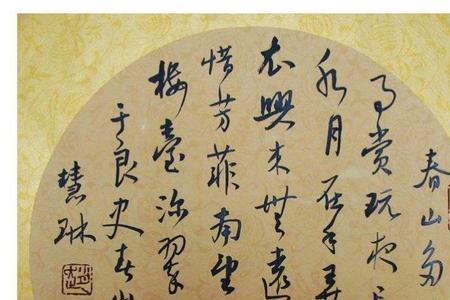 春山多
事賞玩夜
水月在手弄
衣興來無遠
惜芳菲南望
樓臺深翠
于良史春山
慧琳